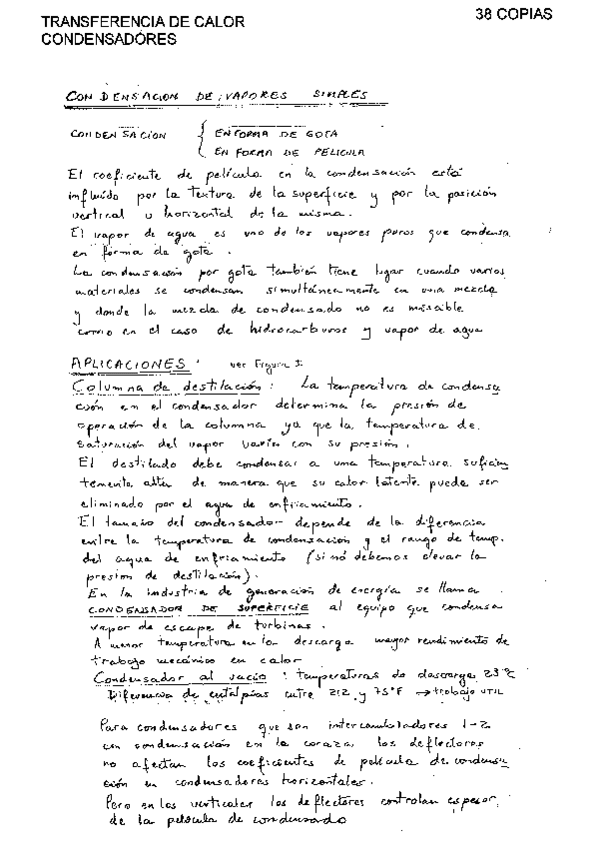 TRANSFERENCIA DE CALOR
CONDENSADORES
38 COPIAS
CONDENSACION DE VAPORES SIMPLES
CONDENSACION { EN FORMA DE GOTA
EN FORMA DE PELICULA
El coeficiente de película en la condensación está
influído por la textura de la superficie y por la posición
vertical u horizontal de la misma.
El vapor de agua es uno de los vapores puros que condensa
en forma de gota.
La condensación por gota también tiene lugar cuando varios
materiales se condensan simultáneamente en una mezcla
y donde la mezcla de condensado no es miscible
como en el caso de hidrocarburos y vapor de agua
APLICACIONES: ver Figura I.
Columna de destilación: La temperatura de condensa
ción en el condensador determina la presión de
operación de la columna ya que la temperatura de
saturación del vapor varía con su presión.
El destilado debe condensar a una temperatura suficien
temente alta de manera que su calor latente pueda ser
eliminado por el agua de enfriamiento.
El tamaño del condensador depende de la diferencia
entre la temperatura de condensación y el rango de temp.
del agua de enfriamiento (si nó debemos elevar la
presión de destilación).
En la industria de generación de energía se llama
CONDENSADOR DE SUPERFICIE al equipo que condensa
vapor de escape de turbinas.
A menor temperatura en la descarga mayor rendimiento de
trabajo mecánico en calor
Condensador al vacío: temperaturas de descarga 23°C
Diferencia de entalpías entre 212 y 75°F → trabajo UTIL
Para condensadores que son intercambiadores 1-2
con condensación en la coraza, los deflectores
no afectan los coeficientes de película de condensa
ción en condensadores horizontales.
Pero en los verticales los deflectores controlan espesor
de la película de condensado